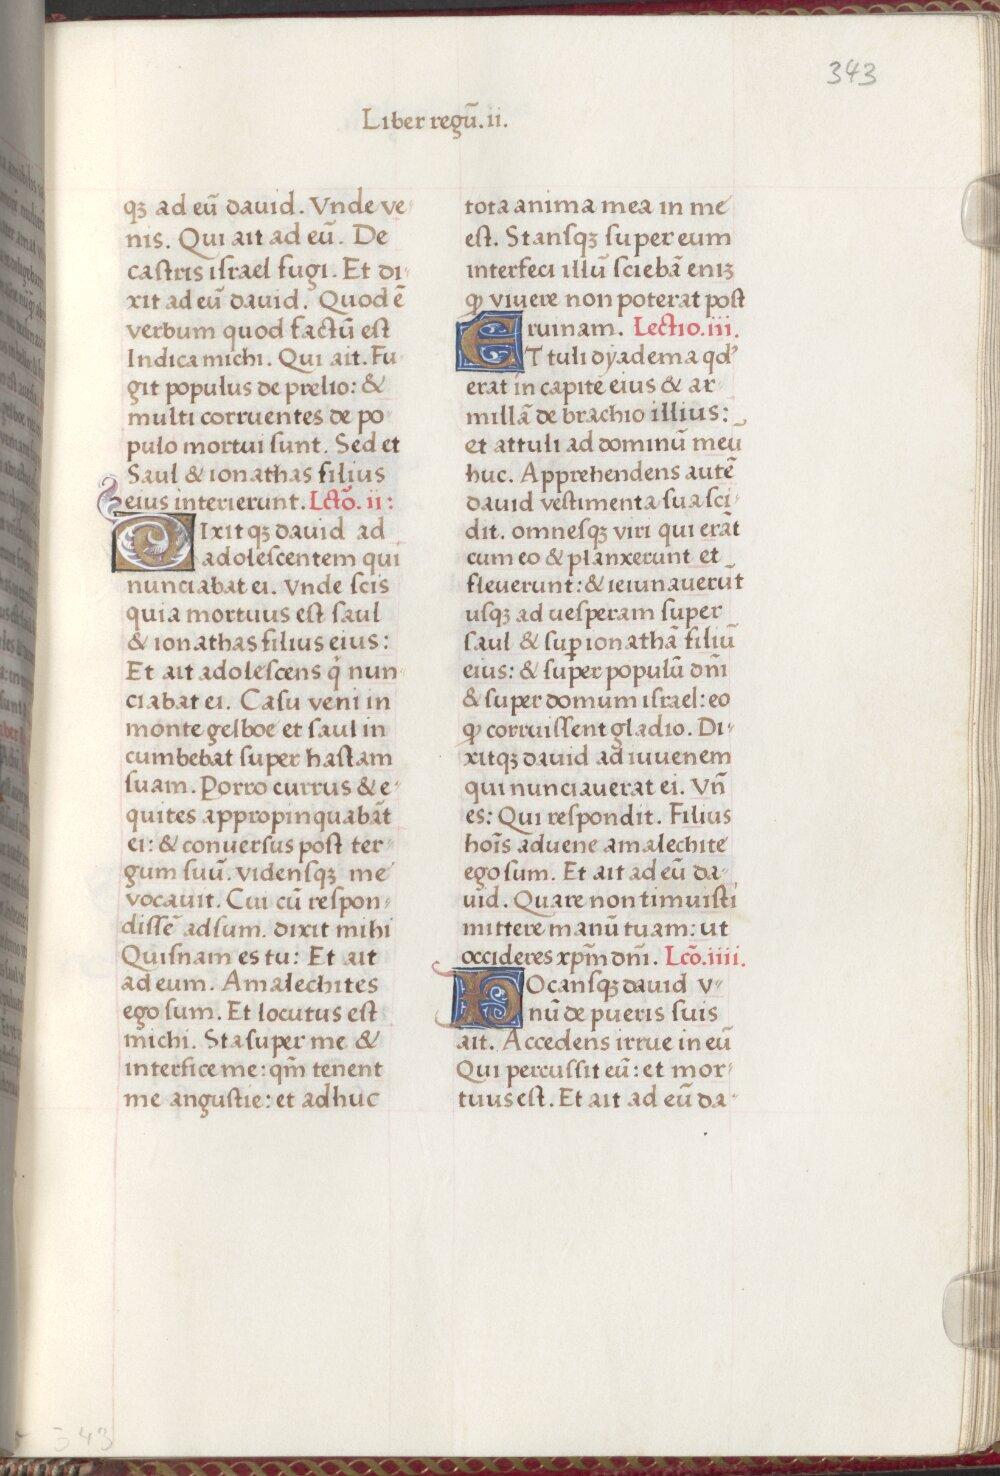 343
Liber regū.ii.
qꝫ ad eū dauid. Vnde ve
nis. Qui ait ad eū. De
castris israel fugi. Et di
xit ad eū dauid. Quod ē
verbum quod factū est
Indica michi. Qui ait. Fu
git populus de prelio: &
multi corruentes de po
pulo mortui sunt. Sed et
Saul & ionathas filius
eius interierunt. Lctō. ii:
DIxit qꝫ dauid ad
adolescentem qui
nunciabat ei. Vnde scis
quia mortuus est saul
& ionathas filius eius:
Et ait adolescens q̄ nun
ciabat ei. Casu veni in
monte gelboe et saul in
cumbebat super hastam
suam. Porro currus & e
quites appropinquabāt
ei: & conuersus post ter
gum suū. vidensqꝫ me
vocauit. Cui cū respon
dissē adsum. dixit mihi
Quisnam es tu: Et ait
ad eum. Amalechites
ego sum. Et locutus est
michi. Sta super me &
interfice me: qm̄ tenent
me angustie: et adhuc
tota anima mea in me
est. Stansqꝫ super eum
interfeci illū sciebā eniꝫ
ꝙ viuere non poterat post
ruinam. Lectio.iii.
ET tuli dyadema qd'
erat in capite eius & ar
millā de brachio illius:
et attuli ad dominū meū
huc. Apprehendens autē
dauid vestimenta sua sci
dit. omnesqꝫ viri qui erāt
cum eo & planxerunt et
fleuerunt: & ieiunauerūt
usqꝫ ad uesperam super
saul & sup ionathā filiū
eius: & super populū dn̄i
& super domum israel: eo
ꝙ corruissent gladio. Di
xitqꝫ dauid ad iuuenem
qui nunciauerat ei. Vn̄
es: Qui respondit. Filius
hoīs aduene amalechite
ego sum. Et ait ad eū da
uid. Quare non timuisti
mittere manū tuam: ut
occideres xp̄m dn̄i. Lcō.iiii.
VOcansqꝫ dauid v
nū de pueris suis
ait. Accedens irrue in eū
Qui percussit eū: et mor
tuus est. Et ait ad eū da
343